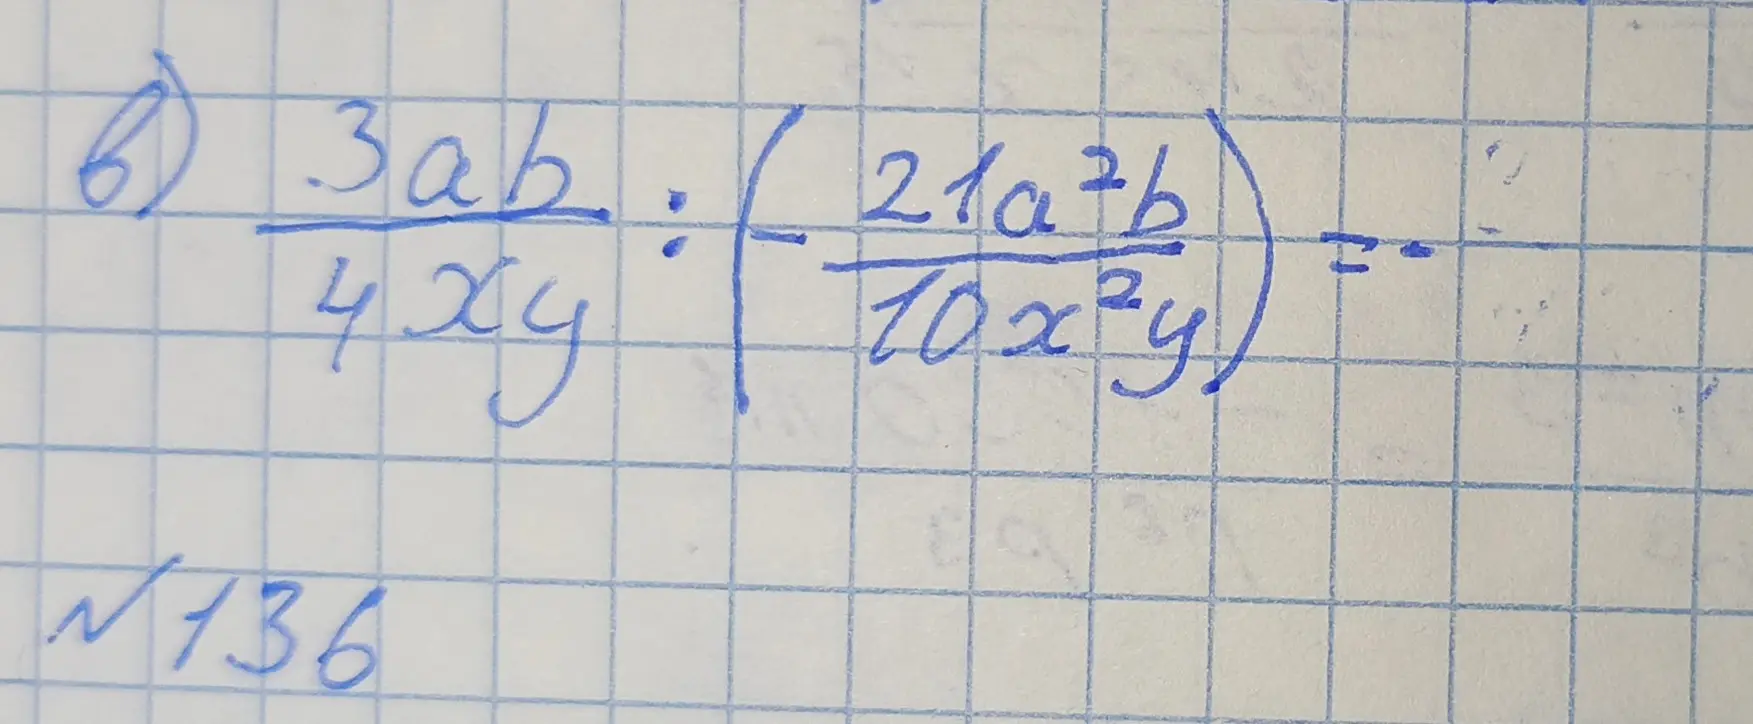 в) 3ab/4xy : (- 21a²b/10x²y) = -
№136